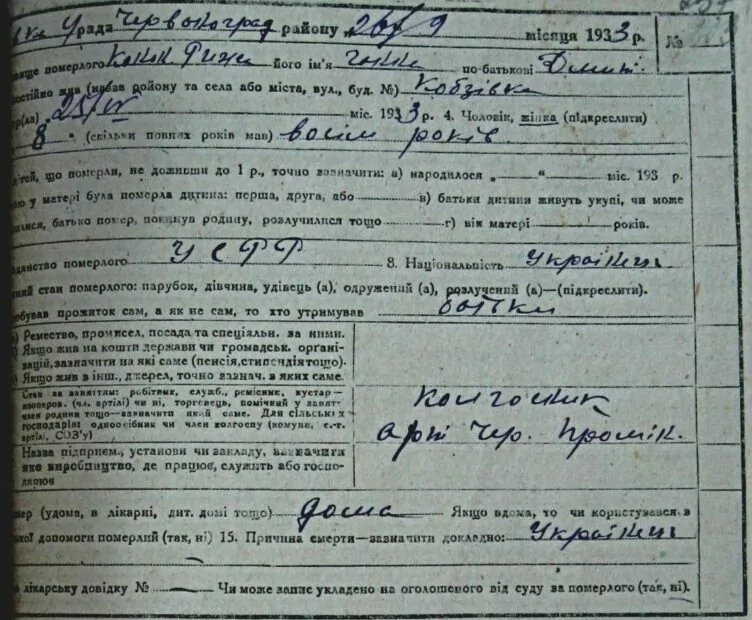 рада Червоноград району 26/9 місяця 1933 р. №
вище померлого його ім'я Ганна по-батькові
остійно жив (назва району та села або міста, вул., буд. №) Кобзівка
ер(ла) 25/IV міс. 1933 р. 4. Чоловік, жінка (підкреслити)
8 " (скільки повних років мав) восім років
тей, що померли, не доживши до 1 р., точно зазначити: а) народилося „ “ міс. 193 р.
ою у матері була померла дитина: перша, друга, або в) батьки дитини живуть укупі, чи може
шлися, батько помер, покинув родину, розлучилися тощо г) вік матері років.
данство померлого УСРР 8. Національність Українець
ний стан померлого: парубок, дівчина, удівець (а), одружений (а), розлучений (а)—(підкреслити).
обував прожиток сам, а як не сам, то хто утримував батьки
) Ремество, промисел, посада та спеціальн. за ними.
) Якщо жив на кошти держави чи громадськ. органі-
зацій, зазначити на які саме (пенсія, стипендія тощо).
) Якщо жив з інш., джерел, точно зазнач. з яких саме.
Стан за заняттям: робітник, служб., ремісник, кустар—
кооперов. (чл. артілі) чи ні, торговець, помічний у занятт.
член родини тощо—зазначити який саме. Для сільських
господарів: одноосібник чи член колгоспу (комуна, с.-г.
артілі, СОЗ'у)
колгосник
арті Чер. Промік.
Назва підприєм., установи чи закладу, зазначити
яке виробництво, де працює, служить або госпо-
дарює
мер (удома, в лікарні, дит. домі тощо) дома Якщо вдома, то чи користувався
ької допомоги померлий (так, ні) 15. Причина смерти—зазначити докладно: Українець
а лікарську довідку № — Чи може запис укладено на оголошеного від суду за померлого (так, ні).